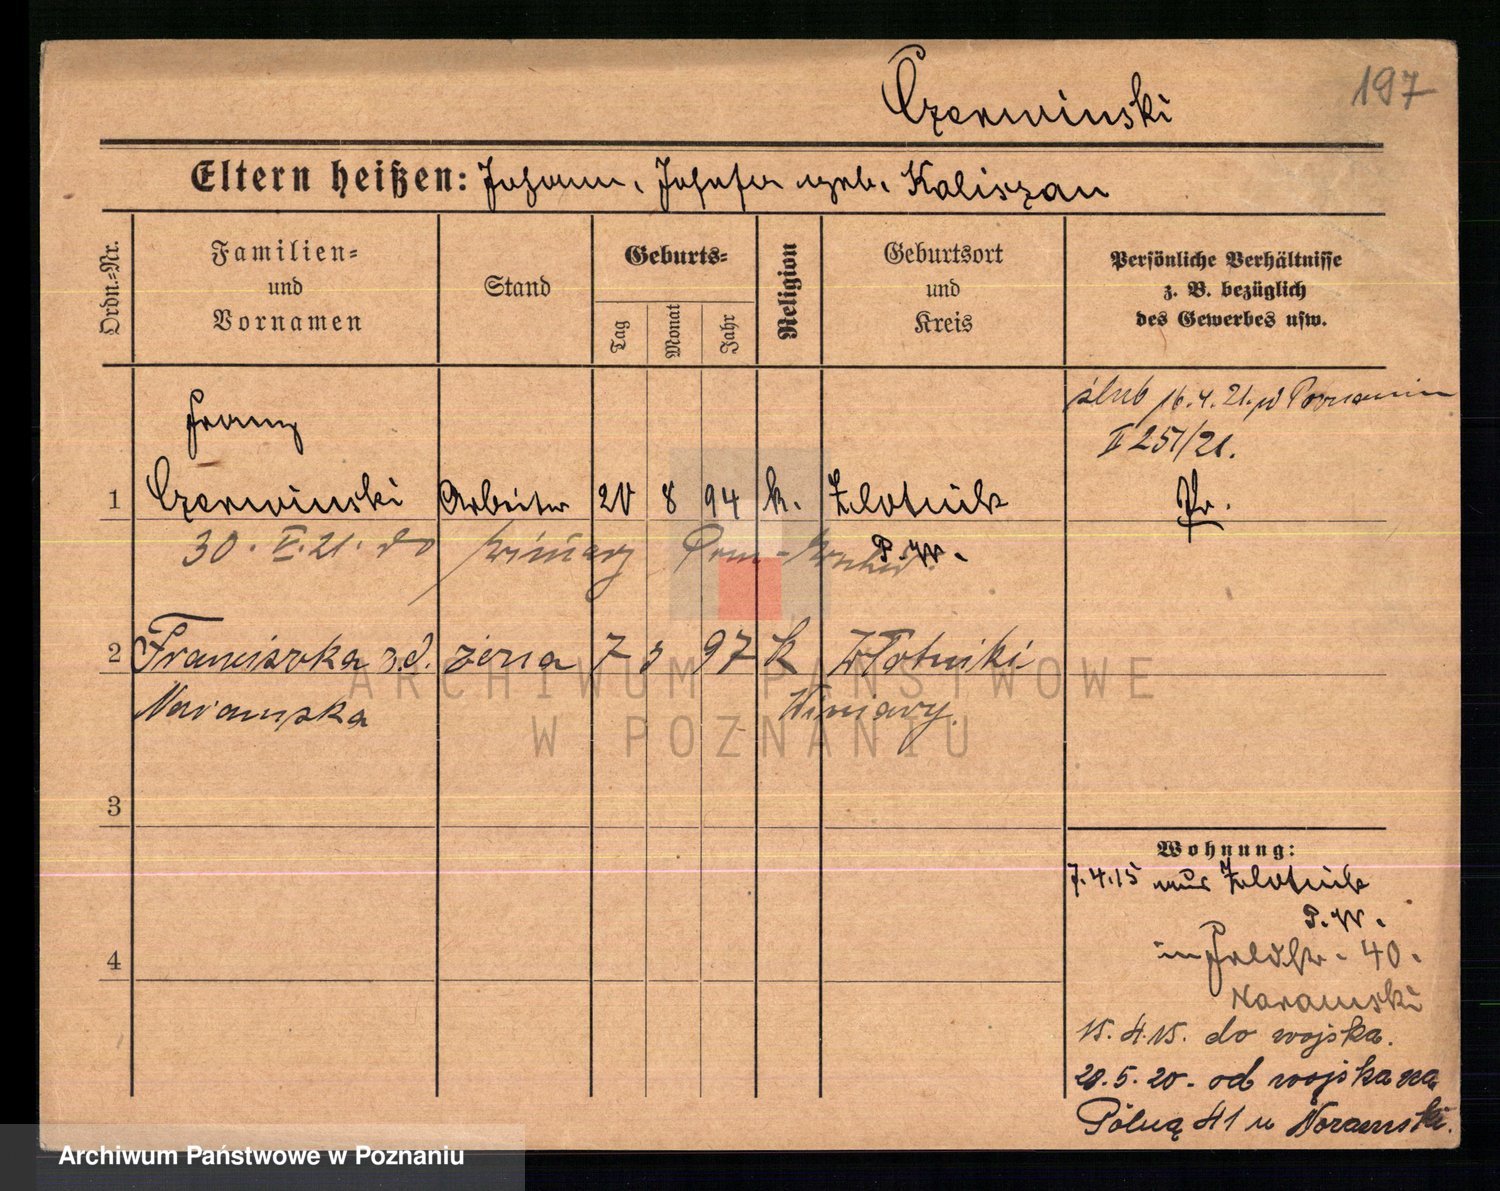 Czerwinski
197
Eltern heißen: Johann, Josefa geb. Kaliszan
Ordn.=Nr.
Familien=
und
Vornamen
Stand
Geburts=
Tag
Monat
Jahr
Religion
Geburtsort
und
Kreis
Persönliche Verhältnisse
z. B. bezüglich
des Gewerbes usw.
ślub 16.4.21. w Poznaniu
II 251/21.
Franz
1 Czerwinski Arbeiter 20 8 94 k. Zlotnik
Pr.
P. W.
30. V. 21. do Winiary
2 Franciszka z.d. żona 7 3 97 k Złotniki
Naramska Winiary.
3
4
Wohnung:
7.4.15 aus Zlotnik
P. W.
in Feldstr. 40.
Naramski
15. 4. 15. do wojska.
20. 5. 20. od wojska na
Polną 41 u Naramski.
ARCHIWUM PAŃSTWOWE
W POZNANIU
Archiwum Państwowe w Poznaniu